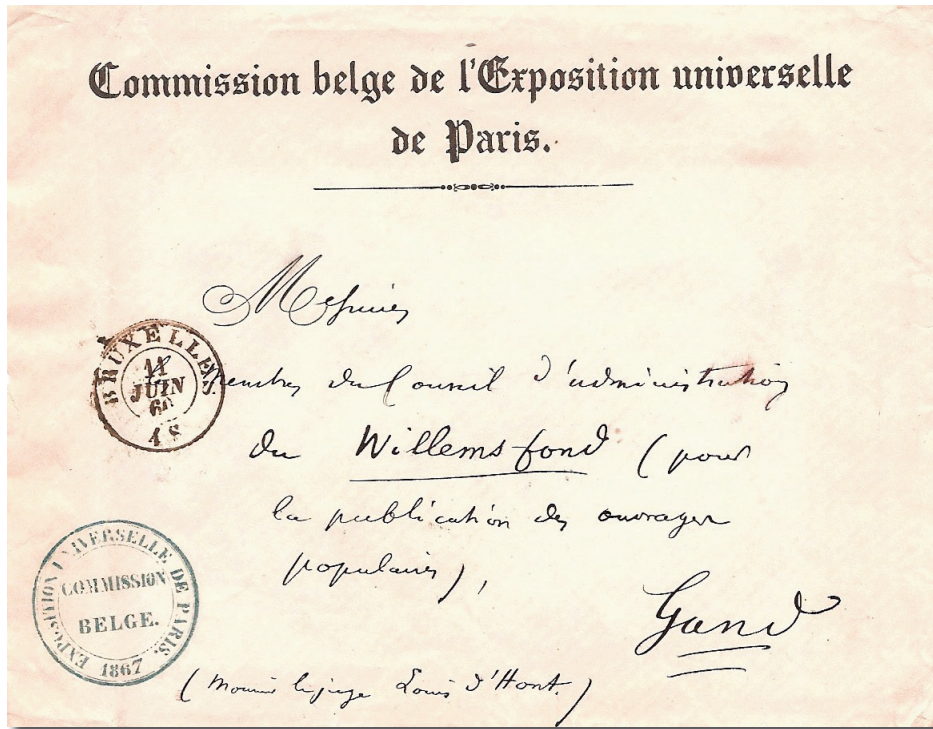 Commission belge de l'Exposition universelle
de Paris.
Messieurs
BRUXELLES
11
JUIN
1 S
membres du Conseil d'administration
du Willems-fond (pour
la publication des ouvrages
populaires),
Gand
EXPOSITION UNIVERSELLE DE PARIS.
COMMISSION
BELGE.
1867
(Monsieur le juge Louis d'Hont.)